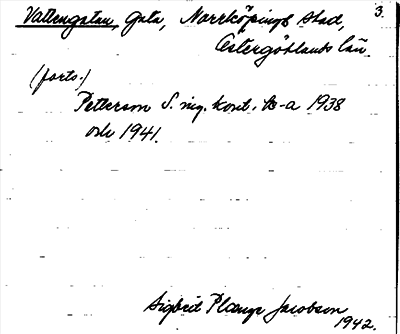 Vattengatan, Gata, Norrköpings stad, 3.
Östergötlands län.
(forts.)
Petterson S. ing. konst. ts-a 1938
och 1941.
Sigbrit Plænge Jacobson
1942.